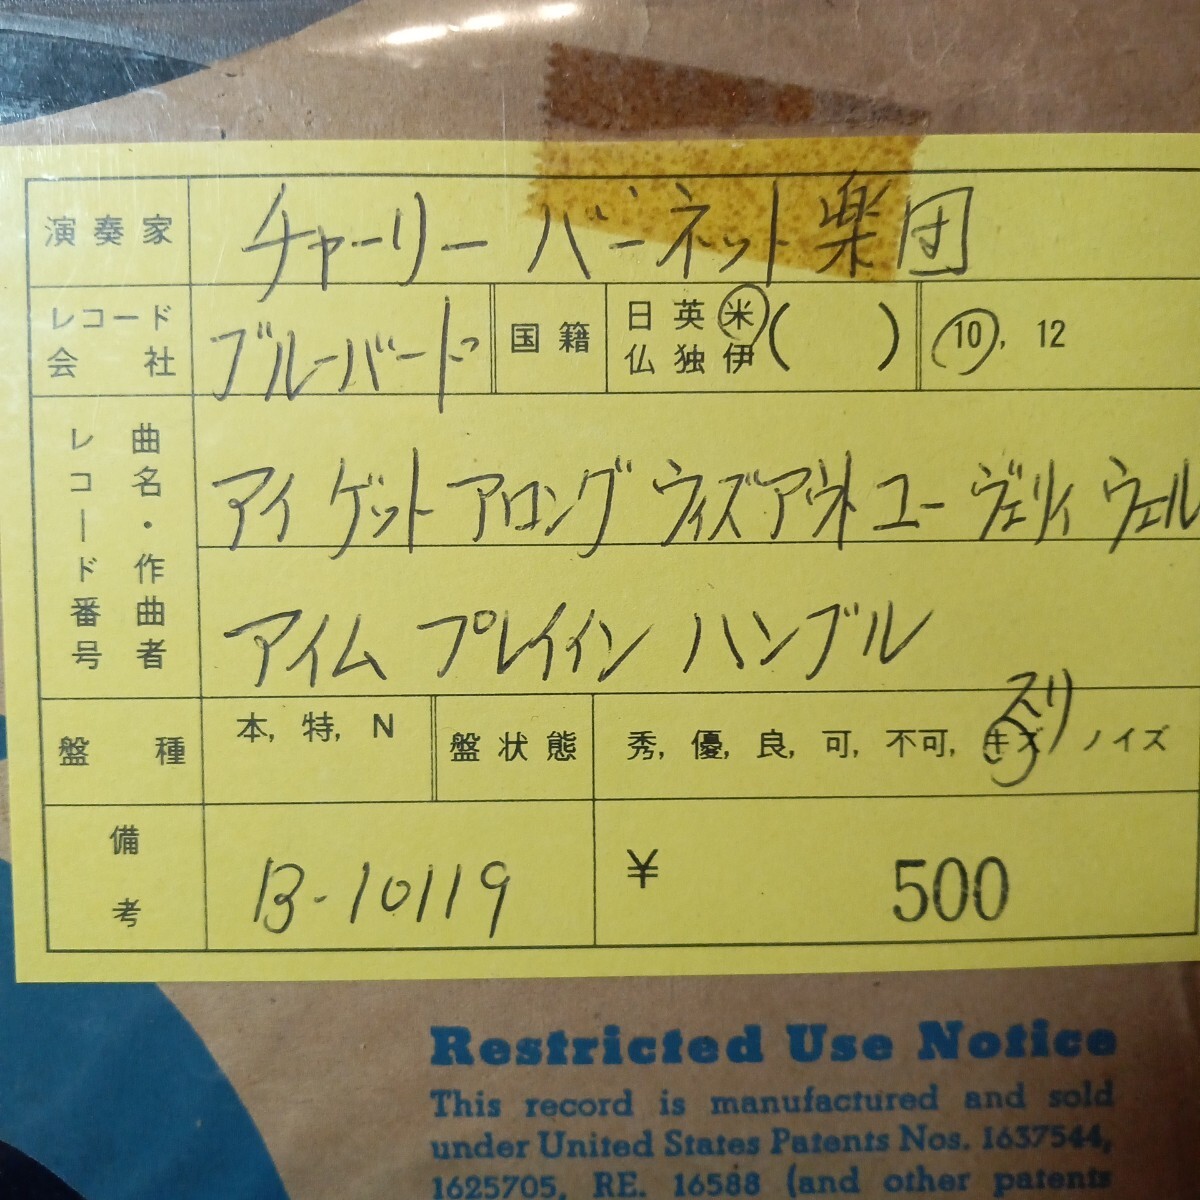 演奏家 チャーリー バーネット楽団
レコード会社 ブルーバード 国籍 日 英 米 ( ) 10, 12
仏 独 伊
レコード番号 曲名・作曲者 アイ ゲット アロング ウィズアウト ユー ヴェリィ ウェル
アイム プレイィン ハンブル
盤種 本, 特, N 盤状態 秀, 優, 良, 可, 不可, キズ ノイズ
スリ
備考 B-10119 ¥ 500
Restricted Use Notice
This record is manufactured and sold
under United States Patents Nos. 1637544,
1625705, RE. 16588 (and other patents